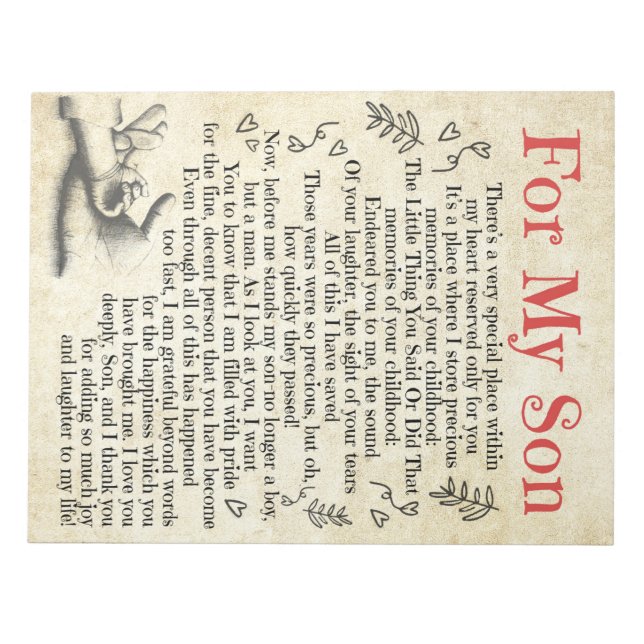 For My Son
There's a very special place within
my heart reserved only for you
It's a place where I store precious
memories of your childhood:
The Little Thing You Said Or Did That
memories of your childhood:
Endeared you to me, the sound
Of your laughter, the sight of your tears
All of this I have saved
Those years were so precious, but oh,
how quickly they passed!
Now, before me stands my son-no longer a boy,
but a man. As I look at you, I want
You to know that I am filled with pride
for the fine, decent person that you have become
Even through all of this has happened
too fast, I am grateful beyond words
for the happiness which you
have brought me. I love you
deeply, Son, and I thank you
for adding so much joy
and laughter to my life!